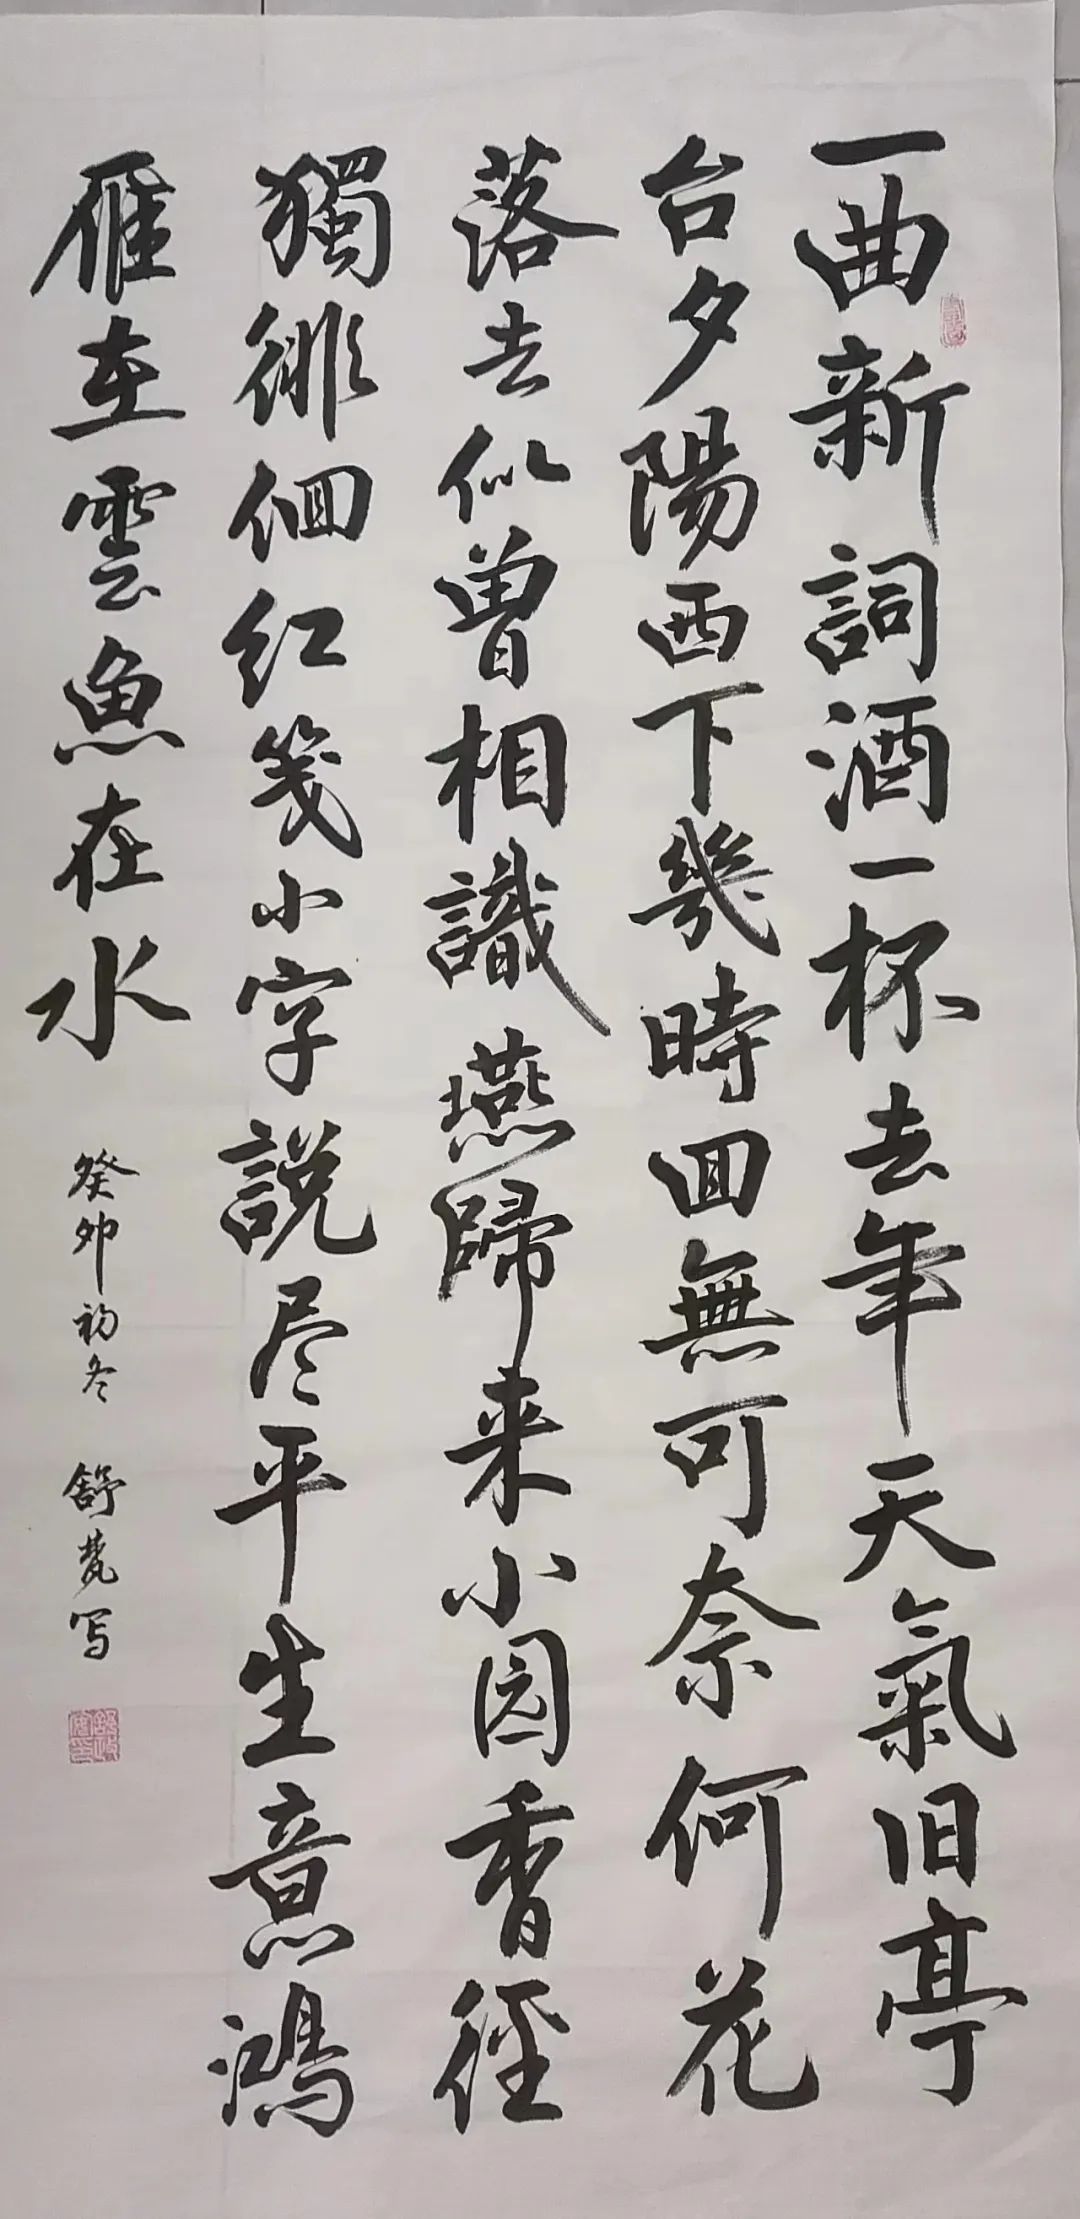 一曲新詞酒一杯去年天氣旧亭
台夕陽西下幾時回無可奈何花
落去似曾相識燕歸来小园香径
獨徘徊红笺小字説尽平生意鴻
雁在雲魚在水
癸卯初冬 舒 写